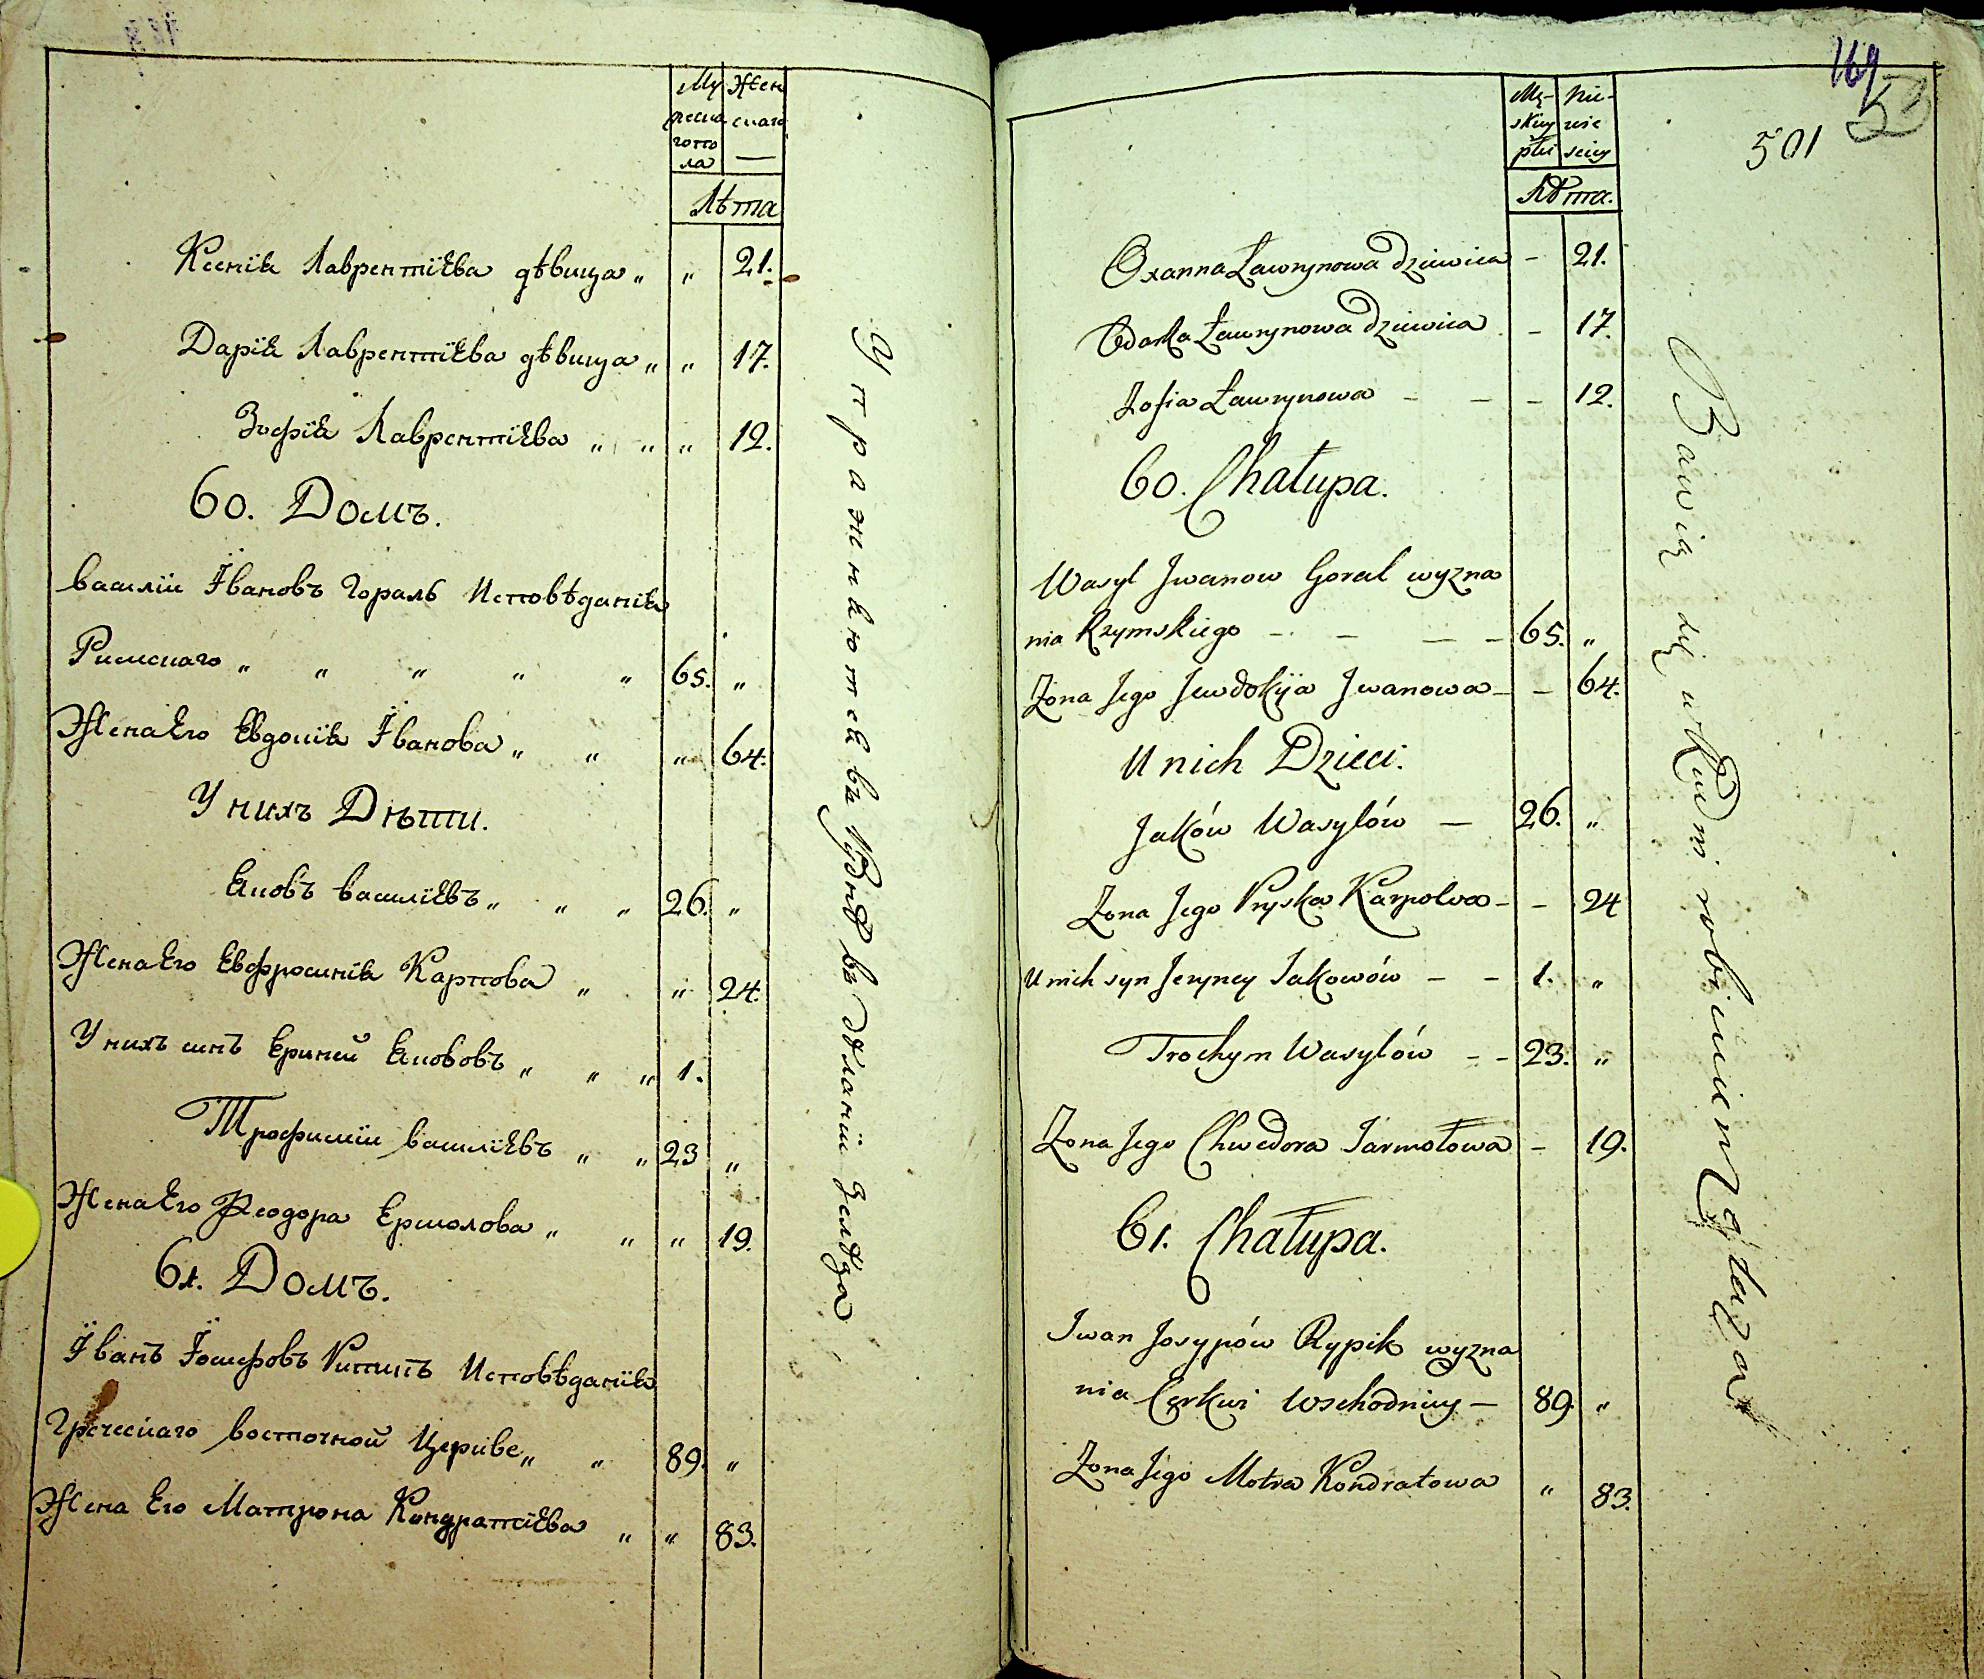 Му Жен
жеска скаго
го по
ла —
Лѣта
Ксенія Лаврентіева дѣвица „ „ 21.
Дарія Лаврентіева дѣвица „ „ 17.
Зофія Лаврентіева „ „ „ 12.
60. Домъ.
Василіи Ївановъ Гораль Исповѣданія
Римскаго „ „ „ „ „ 65. „
Жена Его Евдокія Їванова „ „ „ 64.
У нихъ Дѣти.
Яковъ Василіевъ „ „ „ 26. „
Жена Его Евфросинія Карпова „ „ 24.
У нихъ синъ Ериней Якововъ „ „ „ 1.
Трофимїи Василїевъ „ „ 23 „
Жена Его Ѳеодора Ермолова „ „ „ 19.
61. Домъ.
Їванъ Їосифовъ Рипикъ Исповѣданія
Греческаго Восточной Церкве „ „ 89. „
Жена Его Матрона Кондратіева „ „ 83.
Упражняются въ Руднѣ въ дѣланіи желѣза
169
52
501
Mę- Nie-
skiey wie
płci sciey
Лѣта.
Oxanna Ławrynowa dziewica – 21.
Odarka Ławrynowa dziewica – 17.
Zofia Ławrynowa – – – 12.
60. Chałupa.
Wasyl Jwanow Goral wyzna
nia Rzymskiego – – – – 65. „
Zona Jego Jewdokija Jwanowa – – 64.
U nich Dzieci.
Jaków Wasylów – 26. „
Zona Jego Pryska Karpowa – – 24
U nich syn Jeryney Jakowów – – 1. „
Trochym Wasylów – – 23. „
Zona Jego Chwedora Jarmołowa – 19.
61. Chałupa.
Iwan Josypów Rypik wyzna
nia Cerkwi Wschodniey – 89. „
Zona Jego Motra Kondratowa „ 83.
Bawią się w Rudni robieniem Zelaza